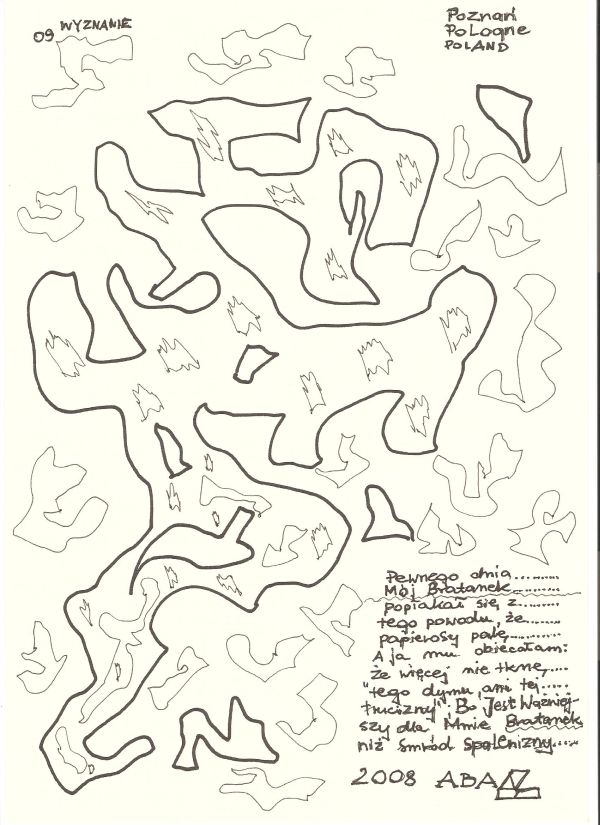 09 WYZNANIE
Poznań
Pologne
POLAND
Pewnego dnia..........
Mój Bratanek..........
popłakał się z.........
tego powodu, że........
papierosy palę..........
A ja mu obiecałam:
że więcej nie tknę,.....
"tego dymu ani tej.....
trucizny". Bo Jest Ważniej-
szy dla Mnie Bratanek
niż smród spalenizny.....
2008 ABANZ